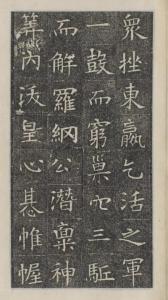 眾挫東嬴乞活之軍
一鼓而窮巢穴三駈
而解羅網公潛稟神
筭內皇心惎帷幄